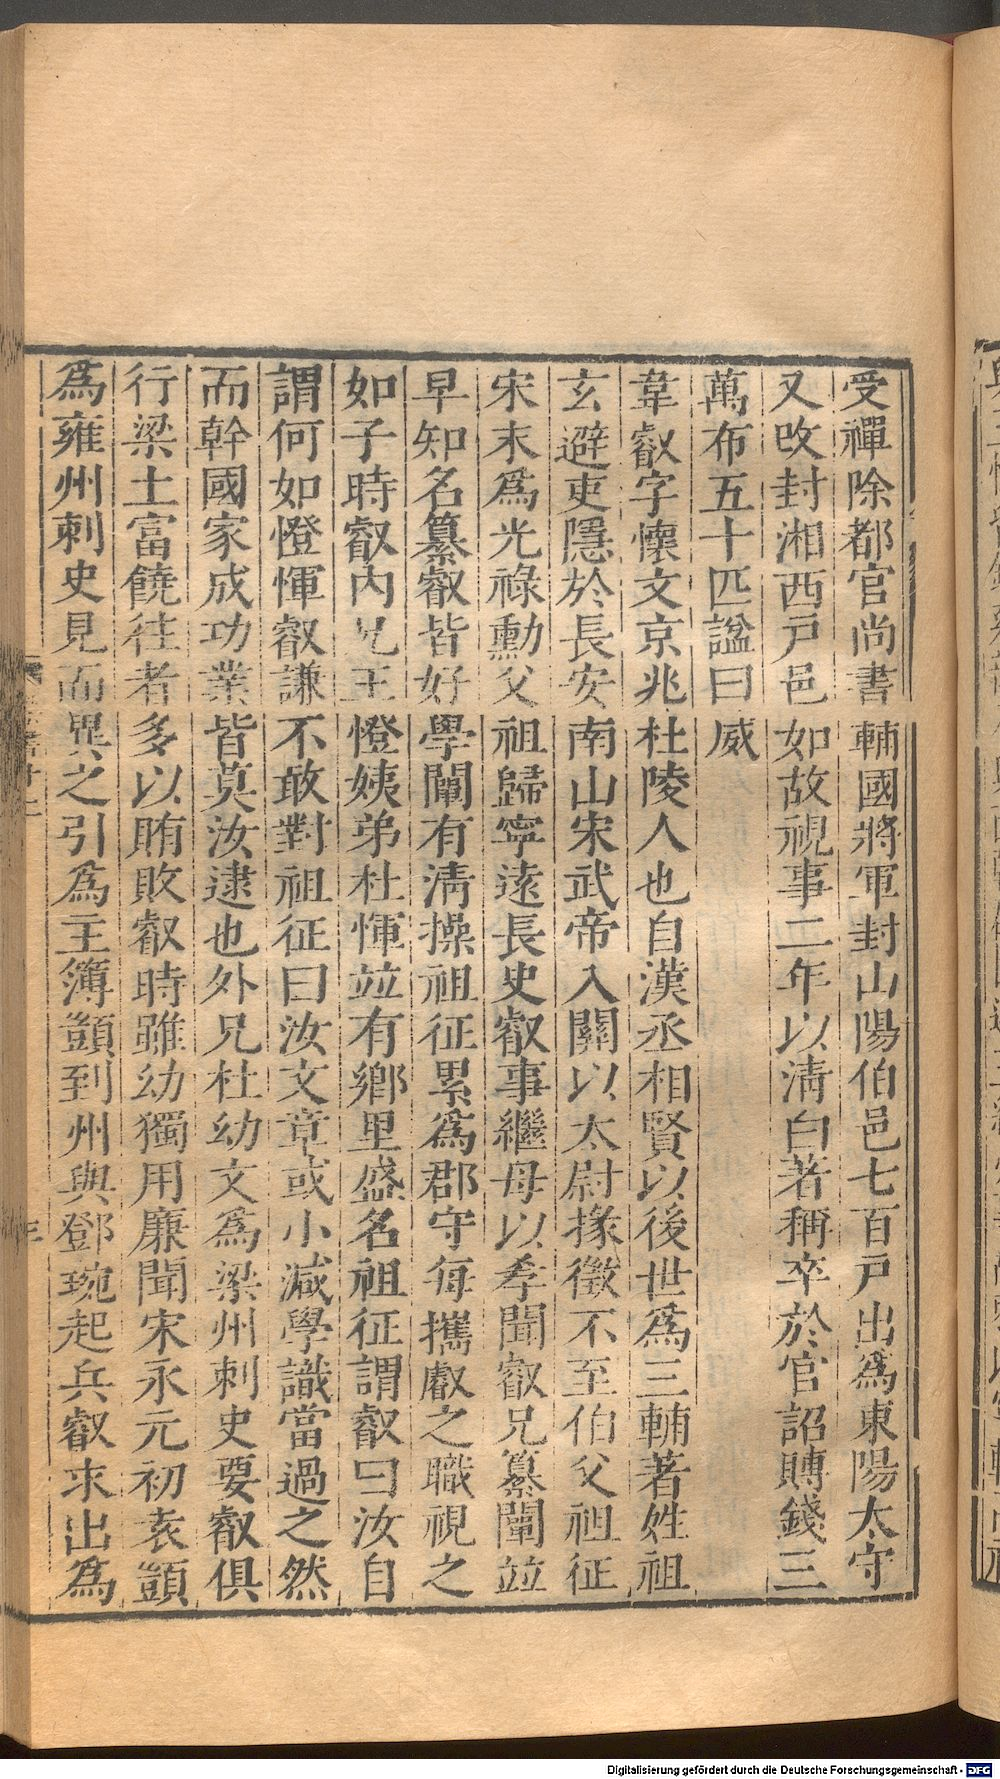 受禪除都官尚書輔國將軍封山陽伯邑七百戸出爲東陽太守
又改封湘西戸邑如故視事二年以清白著稱卒於官詔賻錢三
萬布五十匹諡曰威
韋叡字懷文京兆杜陵人也自漢丞相賢以後世爲三輔著姓祖
玄避吏隱於長安南山宋武帝入關以太尉掾徵不至伯父祖征
宋末爲光祿勳父祖歸寧遠長史叡事繼母以孝聞叡兄纂闡竝
早知名纂叡皆好學闡有清操祖征累爲郡守每攜叡之職視之
如子時叡内兄王憕姨弟杜惲竝有鄉里盛名祖征謂叡曰汝自
謂何如憕惲叡謙不敢對祖征曰汝文章或小減學識當過之然
而幹國家成功業皆莫汝逮也外兄杜幼文爲梁州刺史要叡俱
行梁土富饒往者多以賄敗叡時雖幼獨用廉聞宋永元初袁顗
爲雍州刺史見而異之引爲主簿顗到州與鄧琬起兵叡求出爲
Digitalisierung gefördert durch die Deutsche Forschungsgemeinschaft - DFG